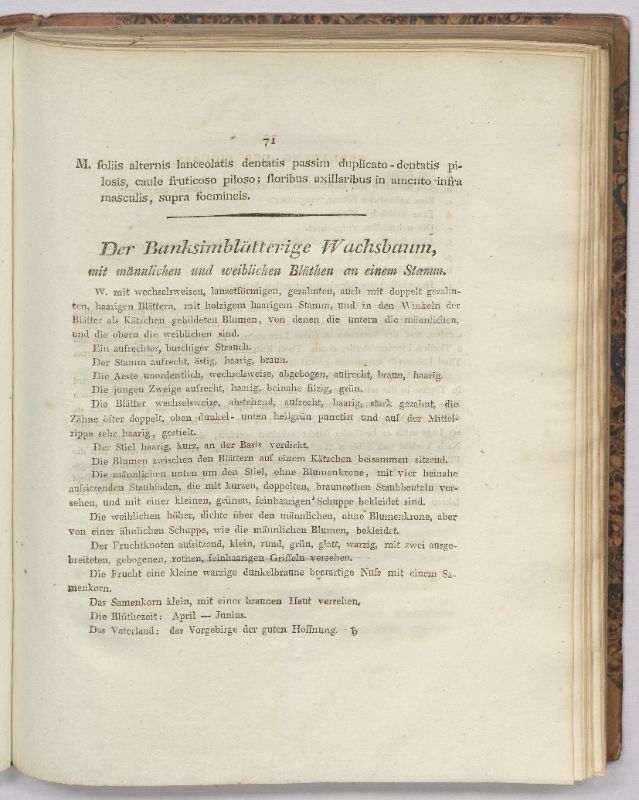 71
M. foliis alternis lanceolatis dentatis passim duplicato-dentatis pi-
losis, caule fruticoso piloso; floribus axillaribus in amento infra
masculis, supra foemineis.
Der Banksimblätterige Wachsbaum,
mit männlichen und weiblichen Blüthen an einem Stamm.
W. mit wechselsweisen, lanzetförmigen, gezahnten, auch mit doppelt gezahn-
ten, haarigen Blättern, mit holzigem haarigem Stamm, und in den Winkeln der
Blätter als Kätzchen gebildeten Blumen, von denen die untern die männlichen,
und die obern die weiblichen sind.
Ein aufrechter, buschiger Strauch.
Der Stamm aufrecht, ästig, haarig, braun.
Die Aeste unordentlich, wechselsweise, abgebogen, aufrecht, braun, haarig.
Die jungen Zweige aufrecht, haarig, beinahe filzig, grün.
Die Blätter wechselsweise, abstehend, aufrecht, haarig, stark gezahnt, die
Zähne öfter doppelt, oben dunkel- unten hellgrün punctirt und auf der Mittel-
rippe sehr haarig, gestielt.
Der Stiel haarig, kurz, an der Basis verdickt.
Die Blumen zwischen den Blättern auf einem Kätzchen beisammen sitzend.
Die männlichen unten um den Stiel, ohne Blumenkrone, mit vier beinahe
aufsitzenden Staubfäden, die mit kurzen, doppelten, braunrothen Staubbeuteln ver-
sehen, und mit einer kleinen, grünen, feinhaarigen Schuppe bekleidet sind.
Die weiblichen höher, dichte über den männlichen, ohne Blumenkrone, aber
von einer ähnlichen Schuppe, wie die männlichen Blumen, bekleidet.
Der Fruchtknoten aufsitzend, klein, rund, grün, glatt, warzig, mit zwei ausge-
breiteten, gebogenen, rothen, feinhaarigen Griffeln versehen.
Die Frucht eine kleine warzige dunkelbraune beerartige Nuss mit einem Sa-
menkorn.
Das Samenkorn klein, mit einer braunen Haut versehen.
Die Blüthezeit: April — Junius.
Das Vaterland: das Vorgebirge der guten Hoffnung. ♄